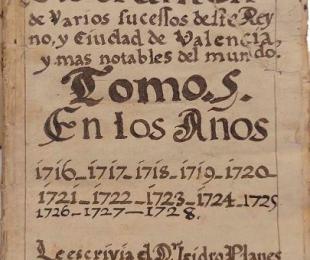 de Varios sucessos deste Rey
no, y Ciudad de Valencia,
y mas notables del mundo.
Tomo, 5.
En los Años
1716_1717_1718_1719_1720_
1721_1722_1723_1724_1725
1726-1727—1728.
Le escrivia el D.r Isidro Planes